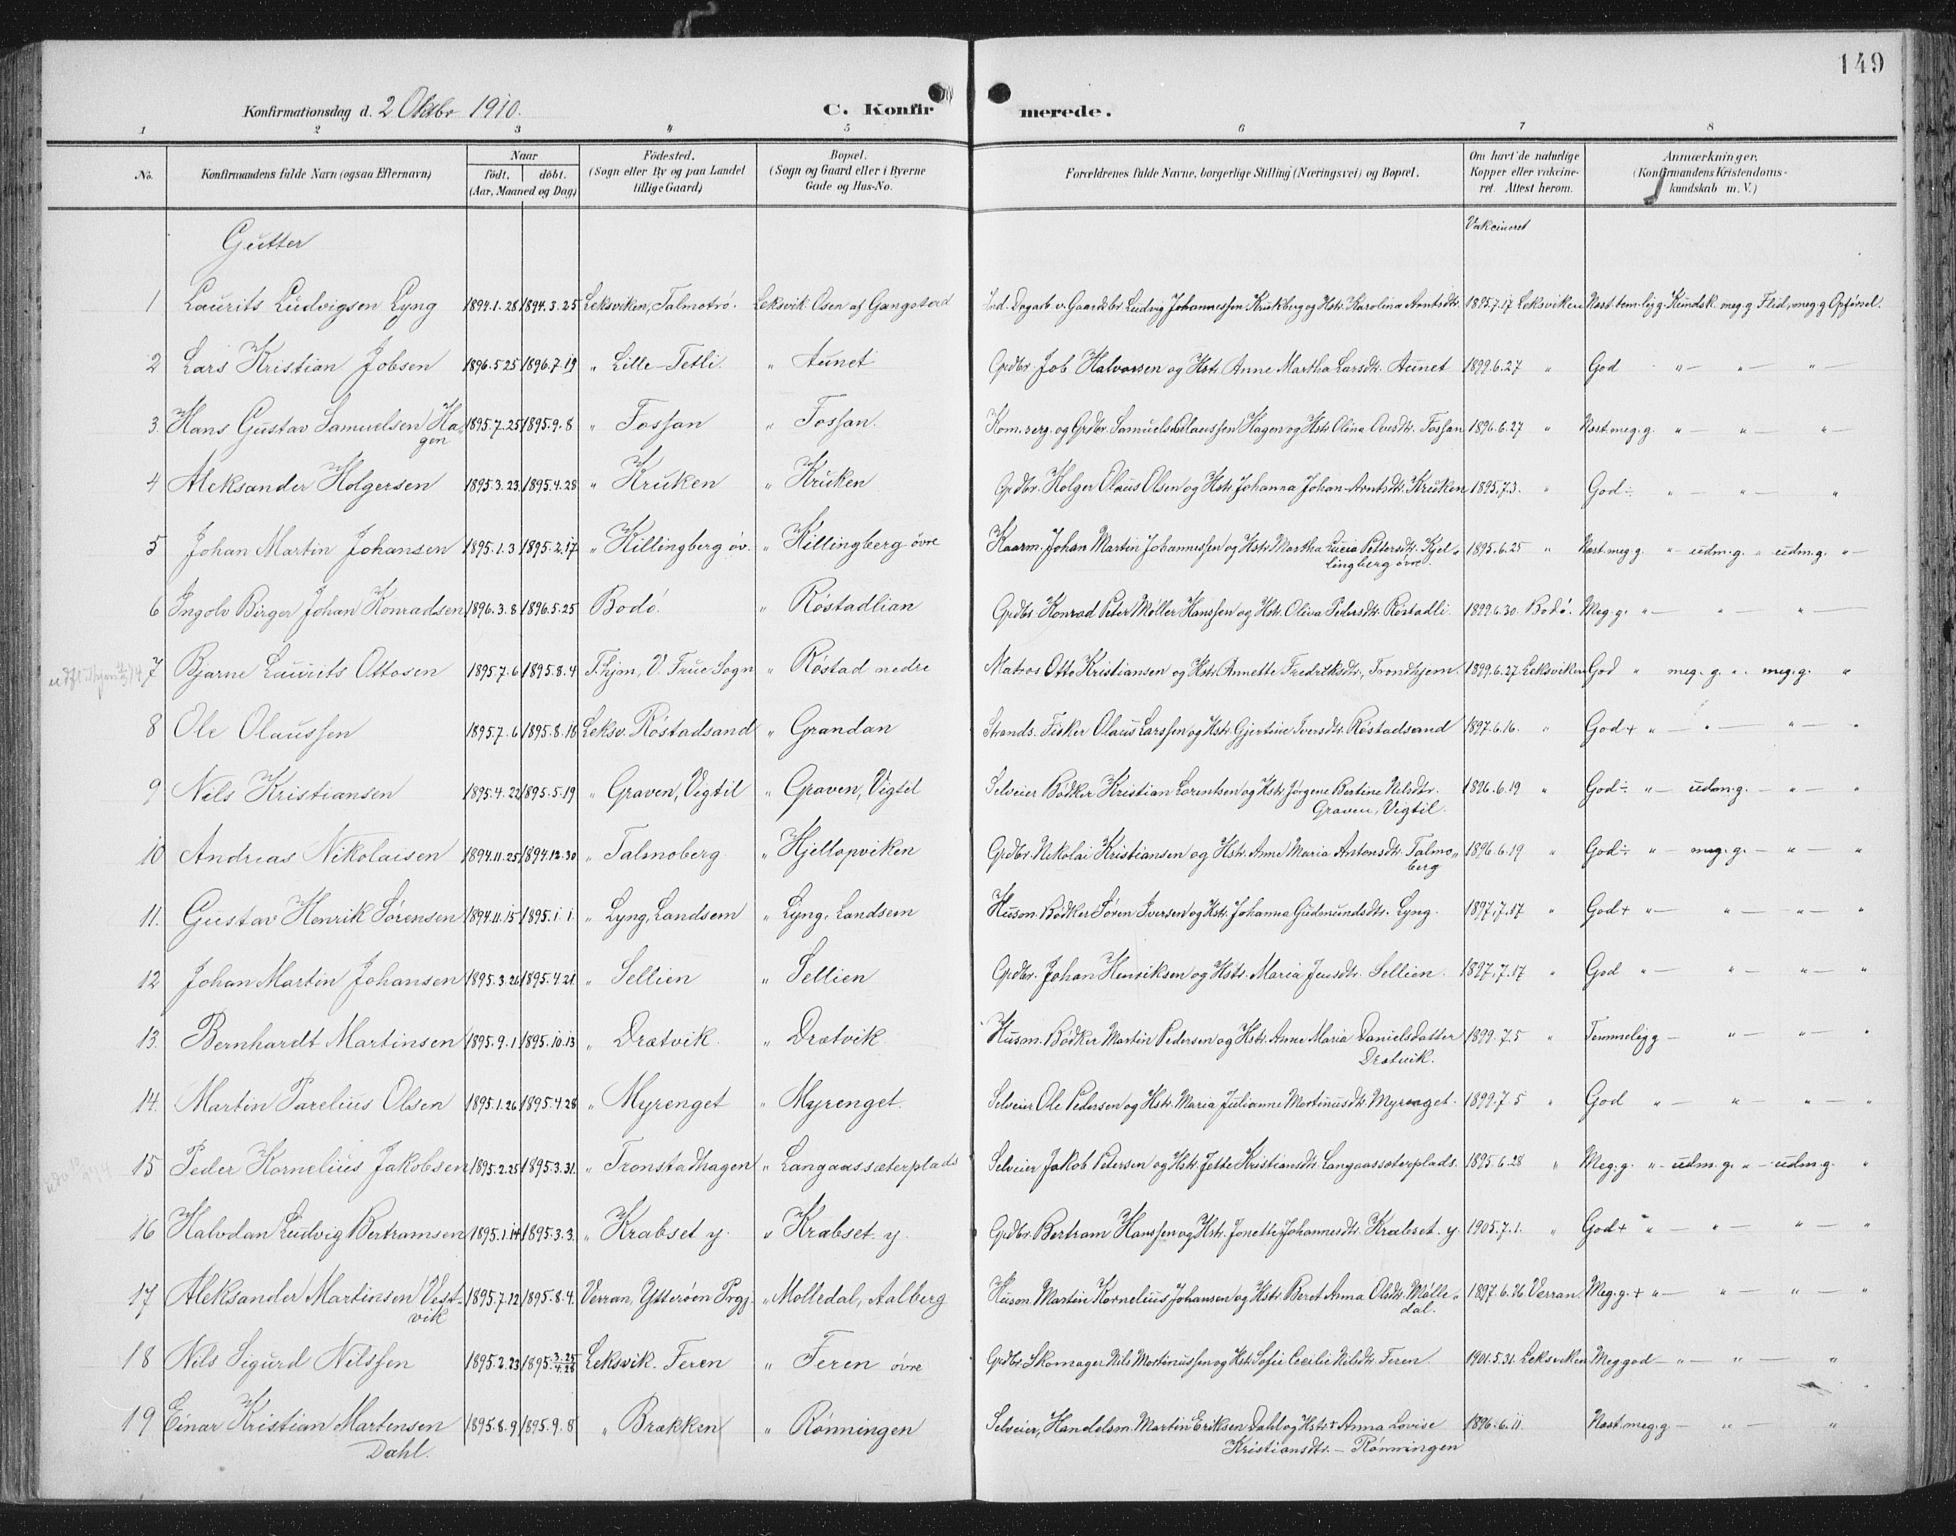 149
Konfirmationsdag d. 2 Oktbr 1910. C. Konfir merede.
1 2 3 4 5 6 7 8
No. Konfirmandens fulde Navn (ogsaa Efternavn) Naar født. døbt. (Aar, Maaned og Dag) Fødested. (Sogn eller By og paa Landet tillige Gaard) Bopæl. (Sogn og Gaard eller i Byerne Gade og Hus-No. Forældrenes fulde Navne, borgerlige Stilling (Næringsvei) og Bopæl. Om havt de naturlige Kopper eller vakcineret. Attest herom. Anmærkninger. (Konfirmandens Kristendomskundskab m. V.)
Gutter Vakcineret
1 Laurits Ludvigsen Lyng 1894.1.28 1894.3.25 Leksviken, Talmotrø. Leksvik Osen af Gangstad Ind. Dagarb. v. Gaardsbr. Ludvig Johannessen Krukberg og Hstr. Karolina Arntsdtr. 1895.7.17 Leksviken Næst. tem. lig g. Kundsk. meg. g. Flid, meg. g Opførsel.
2 Lars Kristian Jobsen 1896.5.25 1896.7.19 " Lille-Tetli. " Aunet Grdbr. Job Halvorsen og Hstr. Anne Martha Larsdtr. Aunet 1899.6.27 " God " — " — " —
3. Hans Gustav Samuelsen Ha-
gen 1895.7.25 1895.9.8 " Fossan " Fossan. Kom.serg. og Grdbr. Samuel Olaussen Hagen og Hstr. Olina Ovesdtr. Fossan 1896.6.27 " Næst. meg. g. " — " — " —
4 Aleksander Holgersen 1895.3.23 1895.4.28 " Kruken " Kruken Grdbr. Holger Olaus Olsen og Hstr. Johanna Johan-Arntsdtr. Kruken 1895.7.3. " God ÷ " — " — "
5 Johan Martin Johansen 1895.1.3 1895.2.17 " Killingberg øv. " Killingberg øvre Kaarm. Johan Martin Johannessen og Hstr. Martha Lucia Pettersdtr. Kjel-
lingberg øvre. 1895.6.25 " Næst. meg. g. " — udm. g. " udm. g. " —
6 Ingolv Birger Johan Konradsen 1896.3.8 1896.5.25 Bodø. " Røstadlian Grdbr. Konrad Peter Møller Hanssen og Hstr. Oliva Pedersdtr. Røstadli. 1899.6.30. Bodø. Meg. g. " — " — " —
7 Bjarne Laurits Ottosen 1895.7.6 1895.8.4 T.hjem, V. Frue Sogn " Røstad nedre Matros Otto Kristiansen og Hstr. Annette Fredriksdtr., Trondhjem. 1899.6.27 Leksviken God " meg. g. " meg. g. "
8 Ole Olaussen 1895.7.6 1895.8.18 Leksv. Røstadsand " Grandan Strands. Fisker Olaus Larssen og Hstr. Gjertine Iversdtr. Røstadsand 1897.6.16. " God + " — " — " — "
9 Nils Kristiansen 1895.4.22 1895.5.19 " Graven, Vigtil " Graven, Vigtil Selveier Bødker Kristian Lorentsen og Hstr. Jørgene Bertine Nilsdtr.
Graven, Vigtil. 1896.6.19 " God ÷ " — udm. g. — " — "
10 Andreas Nikolaisen 1894.11.25 1894.12.30 " Talmoberg " Hjellopviken Grdbr. Nikolai Kristiansen og Hstr. Anne Maria Antonsdtr. Talmo-
berg 1896.6.19 " God ÷ " — meg. g. — " — "
11. Gustav Henrik Sørensen 1894.11.15 1895.1.1 " Lyng, Landsem " Lyng, Landsem Husm. Bødker Søren Iversen og Hstr. Johanna Gudmundsdtr. Lyng. 1897.7.17 " God + " — " — " — "
12 Johan Martin Johansen 1895.3.26 1895.4.21 " Sellien " Sellien Grdbr. Johan Henriksen og Hstr. Maria Jensdtr. Sellien. 1897.7.17 " God " — " — " — "
13. Bernhardt Martinsen 1895.9.1 1895.10.13 " Drætvik. " Drætvik Husm. Bødker Martin Pedersen og Hstr. Anne Maria Danielsdatter
Drætvik. 1899.7.5 " Temmelig g — " — " — "
14. Martin Parelius Olsen 1895.1.26 1895.4.28 " Myrenget " Myrenget. Selveier Ole Pedersen og Hstr. Maria Julianne Martinusdtr. Myrenget. 1899.7.5 " God " — " — " — "
15 Peder Kornelius Jakobsen 1895.2.25 1895.3.31. " Tronstadhagen " Langaassæterplads Selveier Jakob Petersen og Hstr. Jette Kristiansdtr. Langaassæterplads. 1895.6.28 " Meg. g. " — udm. g. " — udm. g. "
16 Halvdan Ludvig Bertramsen 1895.1.14 1895.3.3. " Krabset y. " Krabset. y. Grdbr. Bertram Hanssen og Hstr. Jonette Johannesdtr. Krabset. y. 1905.7.1. " God + " — " — " — "
17 Aleksander Martinsen Vest-
vik 1895.7.12 1895.8.4. Verran, Ytterøen Prgj. " Molledal, Aalberg Husm. Martin Kornelius Johansen og Hstr. Beret Anna Olsdtr. Mølle-
dal. 1897.6.26 Verran. Meg. g. + " — " — " — "
18 Nils Sigurd Nilssen 1895.2.23 1895.3.25 4.28 Leksvik. Feren " Feren øvre Grdbr. Skomager Nils Martinussen og Hstr. Sofie Cecilie Nilsdtr. Feren 1901.5.31. Leksviken Meg god — " — " — "
19 Einar Kristian Martensen
Dahl. 1895.8.9 1895.9.8 " Brækken " Rønningen Selveier, Handelsm. Martin Eriksen Dahl og Hstr. + Anna Lovise
Kristiansdtr. — Rønningen 1896.6.11. Næst. meg. g — " "